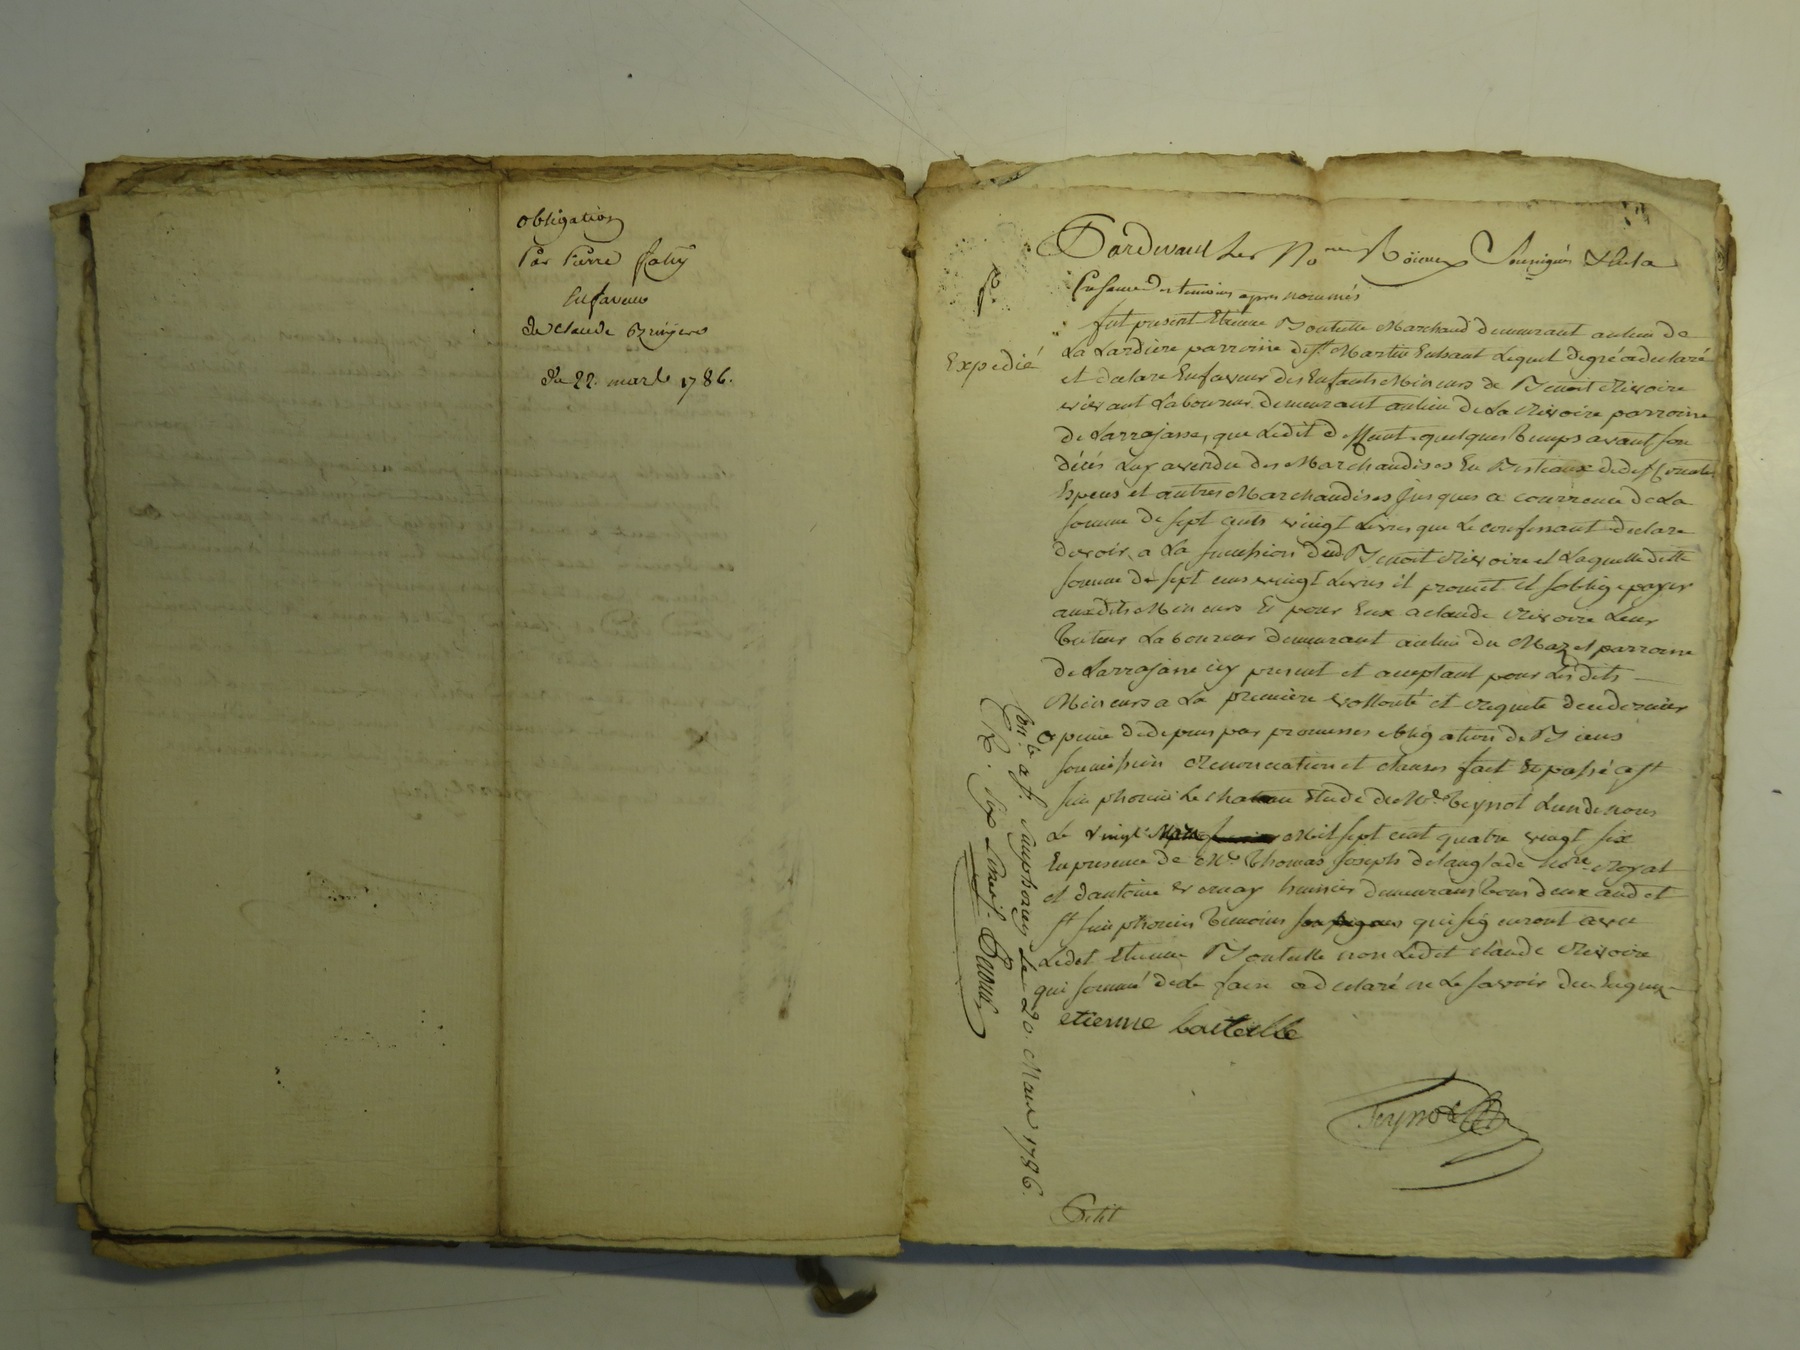 obligation
Par Pierre
En faveur
de Claude Bruyere
Du 22. mars 1786.
Expedié
Pardevant Les No.res Roïaux Sousignés & de la
Presence des temoins apres nommés
fut present Etienne Bouteille Marchand demeurant au lieu de
La Lardiere parroisse de St Martin Enhaut Lequel de gré a declaré
et declare En faveur des Enfants Mineurs de Benoit Rivoire
vivant Laboureur demeurant au lieu de La Rivoire parroisse
de Larrajasse, que Ledit deffunt quelques temps avant son
décés Luy a vendu des Marchandises En Bestiaux de differentes
Espens et autres Marchandises jusques a courrence de La
somme de sept cents vingt Livres que Le confessant declare
devoir a La succession dud Benoit Rivoire et Laquelle ditte
somme de sept cens vingt Livres il promet et soblige payer
auxdits Mineurs Et pour Eux a claude Rivoire Leur
Tuteur Laboureur demeurant au lieu du Mazel parroisse
de Larrajasse icy present et acceptant pour Lesdits
Mineurs a La premiere vollonté et Requete de ce dernier
a peine de depens par promesses obligation de Biens
soumission Renonciation et clauses fait Et passé a St
simphorien Le chateau Etude de Me. Teynot Lun de nous
Le vingt Mars Mil sept cent quatre vingt six
En presence de Me. Thomas Joseph delanglade no.re Royal
et dantoine huissier demeurans tous deux aud et
St simphorien Temoins qui signeront avec
Ledet Etienne Bouteille non Ledet claude Rivoire
qui sommé de Le faire a declaré ne Le savoir de ce Enquis
etienne bouteille
Teynot
Petit
Con.lé a St. Simphorien le 20. Mars 1786.
R. six livres